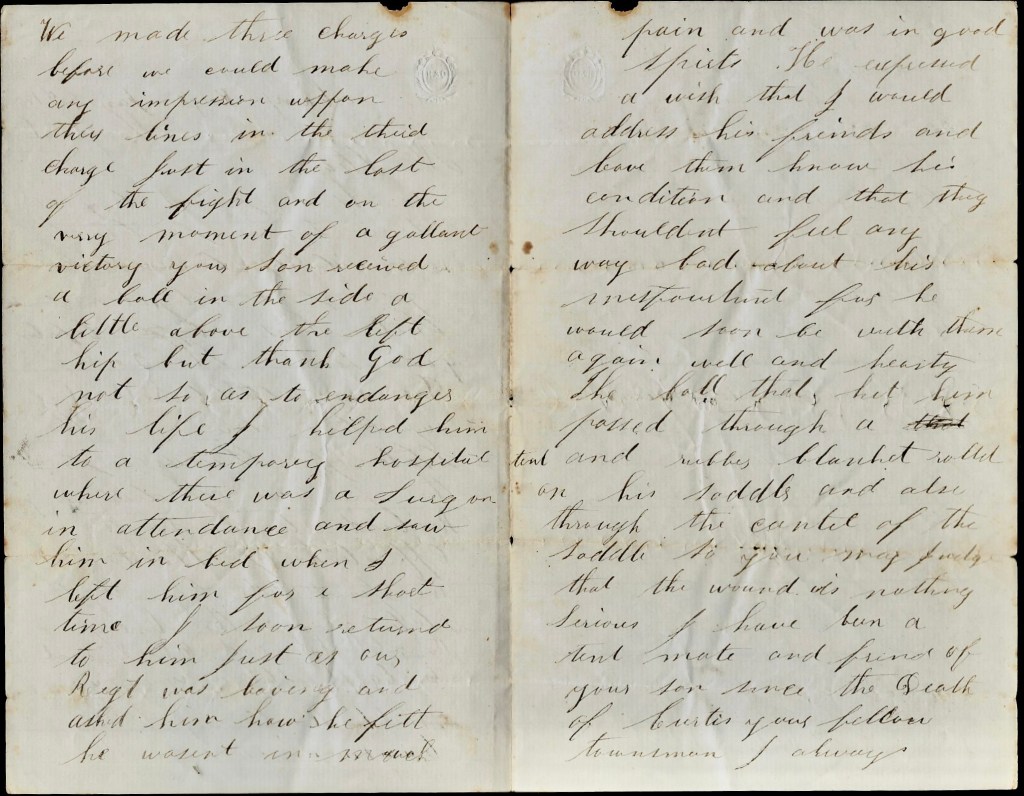 We made three charges
before we could make
any impression uppon
they lines in the third
charge Just in the last
of the fight and on the
very moment of a gallant
victory your son received
a ball in the side a
little above the left
hip but thank God
not so as to endanger
his life I helped him
to a temporey hospital
where there was a Surgon
in attendance and saw
him in bed when I
left him for a short
time I soon returnd
to him Just as our
Regt was leaving and
asked him how he felt
he wasent in much
pain and was in good
spirts He expressed
a wish that I would
address his freinds and
leave them know his
condition and that they
shouldent feel any
way bad about his
for he
would soon be with them
again well and hearty
The ball that hit him
passed through a that
tent and rubber blanket rolld
on his saddle and also
through the cantel of the
saddle so you may Judge
that the wound is nothing
serious I have ben a
tent mate and freind of
your son since the Death
of Curtis your fellow
townsman I always